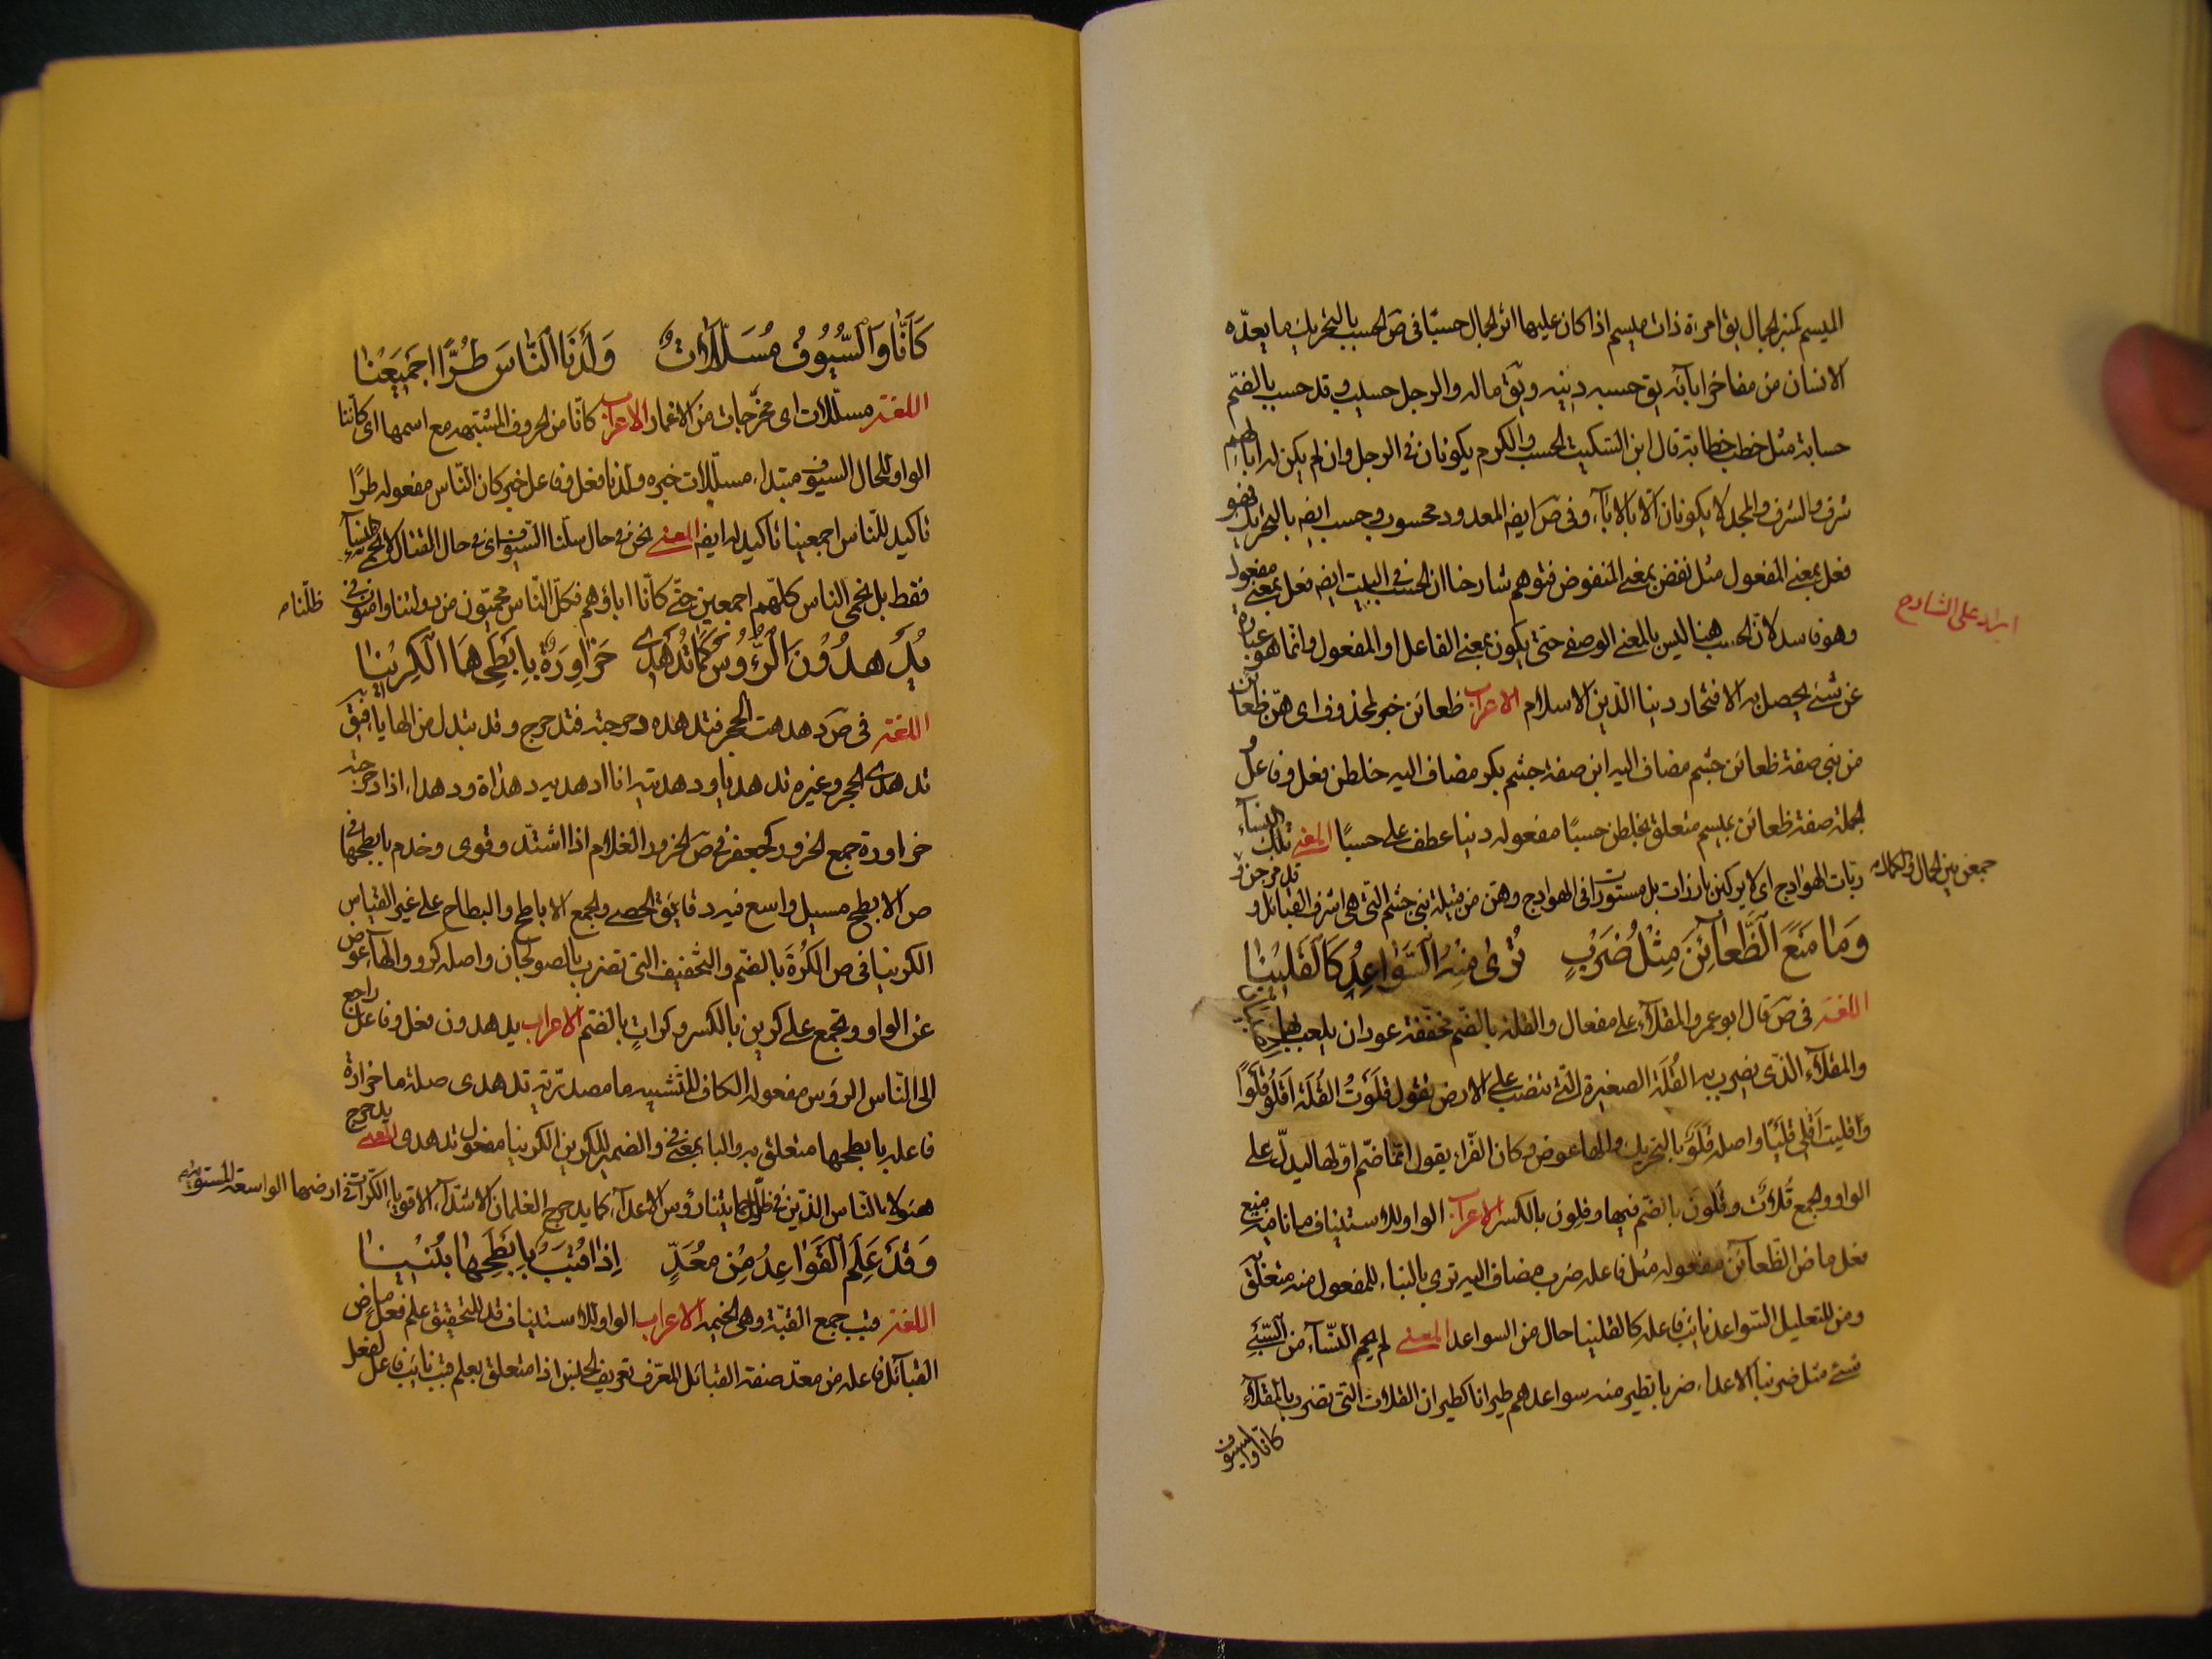 الميسم كمنبر الجمال يق امراة ذات ميسم اذا كان عليها اثر الجمال حسبًا في ص الحسب بالتحريك ما يعدّه
الانسان من مفاخر ابآئه يق حسبه دينه ويق ماله والرجل حسيب وقد حسب بالضمّ
حسابة مثل خطب خطابة قال ابن السّكيت الحسب والكرم يكونان في الرجل وان لم يكن له اباء لهم
شرف والشرف والمجد لا يكونان الّا بالابآء وفي ص ايضه المعدود محسوب وحسب ايضه بالتحريك فهو
فعل بمعنى المفعول مثل نفض بمعنى المنفوض فتوهم شارحنا ان الحسب في البيت ايضه فعل بمعنى مفعول
وهو فاسد لانّ الحسب هنا ليس بالمعنى الوصفي حتّى يكون بمعنى الفاعل او المفعول وانّما هو عبارة
ايراد على الشارح
عن شيء يحصل به الافتخار دينا الدّين الاسلام الاعراب ظعائن خبر لمحذوف اى هنّ ظعائن
من بني صفة ظعائن جشم مضاف اليه ابن صفة جشم بكر مضاف اليه خلطن فعل وفاعل و
الجملة صفة ظعائن بميسم متعلق بخلطن حسبًا مفعوله دينا عطف على حسبًا المعنى تلك النسآء
ربّات الهوادج اى لا يركبن بارزات بل مستورات في الهوادج وهنّ من قبيلة بني جشم الّتي هي اشرف القبائل و قد مزجن و
جمعن بين الجمال والكمال
وَمَا مَنَعَ الظَّعَآئِنَ مِثْلُ ضَرْبٍ تُرٰى مِنْهُ السَّوَاعِدُ كَالقُلِينَا
اللغة في ص قال ابو عمرو المقلآء على مفعال والقلة بالضم مخففة عودان يلعب بهما
والمقلآء الذّى يضرب به القُلَة الصغيرة الّتي تنصب على الارض تقول قَلَوْتُ القُلَةَ اَقْلُو قَلْوًا
وقليت اقلي قليًا واصله قُلَوٌ بالتحريك والهاء عوض وكان الفرّاء يقول انّما ضمّ اوّلها ليدلّ على
الواو والجمع قُلاتٌ وقُلون بالضّم فيها وقِلون بالكسر الاعراب الواو للاستيناف ما نافية منع
فعل ماض الظّعآئن مفعوله مثل فاعله ضرب مضاف اليه ترى بالبناء للمفعول منه متعلّق به
ومن للتعليل السّواعد نائب فاعله كالقلينا حال من السواعد المعنى لم يحم النّسآء من السّبي
شيء مثل ضربنا الاعداء ضربا تطير منه سواعدهم طيرانا كطيران القلات التي تضرب بالمقلآء
كانّا والسيوف
كَأَنَّا وَالسُّيُوفُ مُسَلَّلَاتٌ وَلَدْنَا النَّاسَ طُرًّا اَجْمَعِينَا
اللغة مسلّلات اى مخرجات من الاغماد الاعراب كانّا من الحروف المشبّهه مع اسمها اى كانّنا
الواو للحال السيوف مبتداء مسلّلات خبره ولدنا فعل وفاعل خبر كان النّاس مفعوله طرًّا
تاكيد للنّاس اجمعينا تاكيد له ايضه المعنى نحن في حال سلّنا السّيوف اى في حال القتال لا نحمي النسآء
فقط بل نحمي الناس كلّهم اجمعين حتّى كانّا اباؤهم فكلّ النّاس محميّون من دولتنا وامنون في
ظلّنا
يُدَهْدُونَ الرُّؤُسَ كَمَا تُدَهْدِى حَزَاوِرَةٌ بِاَبْطَحِهَا الكُرِينَا
اللغة في ص دهدهت الحجر فتدهده دحرجته فتدحرج وقد تبدل من الها يا فيق
تدهدى الحجر وغيره تدهديا ودهديته انا ادهديه دهداة ودهداء اذا دحرجته
حزاورة جمع الحزور كجعفر في ص الحزور الغلام اذا اشتدّ وقوى وخدم بابطحها في
ص الابطح مسيل واسع فيه دقاق الحصى والجمع الاباطح والبطاح على غير القياس
الكرينا في ص الكُرَة بالضم والتخفيف التي تضرب بالصولجان واصله كرو والهآء عوض
عن الواو وتجمع على كرين بالكسر وكرات بالضّم الاعراب يدهدون فعل وفاعل راجع
الى النّاس الرؤس مفعوله الكاف للتّشبيه ما مصدريّة تدهدى صلة ما حزاورة
فاعله بابطحها متعلق به والبا بمعنى في والضمير للكرين الكرينا مفعول تدهدى المعنى يدحرج
هؤلاء النّاس الّذين في ظلّ حمايتنا رؤس الاعدآء كما يدحرج الغلمان الاشدّآء الاقويآء الكرات في ارضها الواسعة المستوية
وَقَدْ عَلِمَ القَوَاعِدُ مِنْ مُعَدٍّ اِذَا قُبَبٌ بِاَبْطَحِهَا بُنِينَا
اللغة قبب جمع القبّة وهي الخيمه الاعراب الواو للاستيناف قد للتحقيق علم فعل ماضٍ
القبآئل فاعله من معدّ صفة القبائل المعرّف تعريف الجنس اذا متعلق بعلم قبب نائب فاعل لفعل